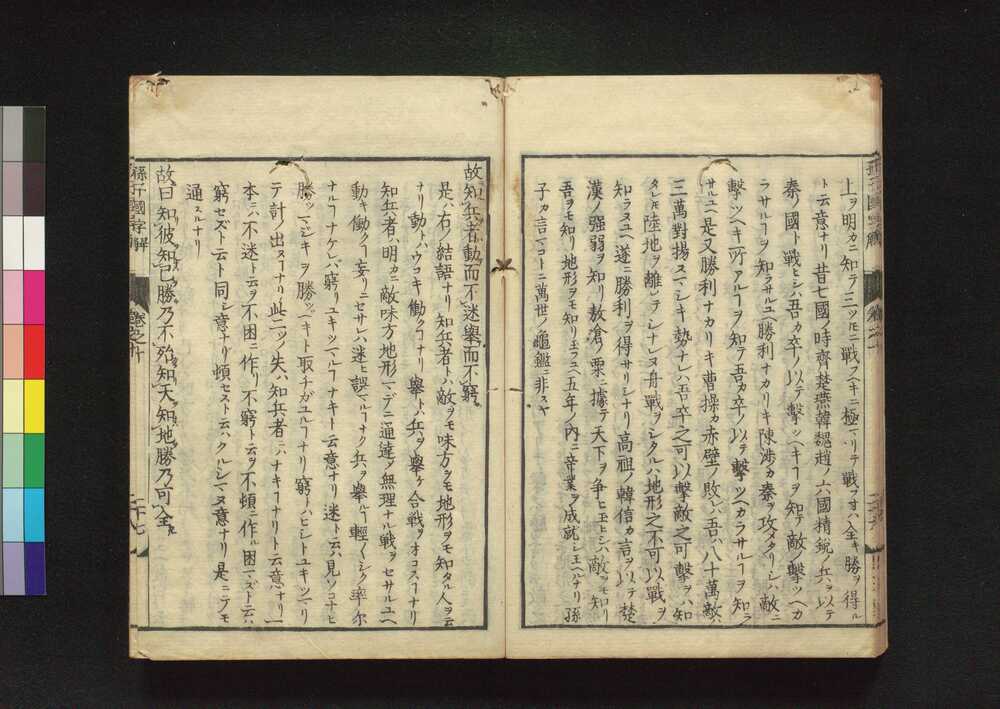 上ヲ明カニ知テ三ツモニ戦フヘキニ極マリテ戦フ寸ハ全キ勝ヲ得ル
ト云意ナリ昔七國ノ時齊楚燕韓魏趙ノ六國精鋭ノ兵ヲ以テ
秦ノ國ト戦ヒシハ吾カ卒ノ以テ撃ツヘキヿヲ知テ敵ノ撃ツヘカ
ラサルヿヲ知ラサルユヘ勝利ナカリキ陳渉カ秦ヲ攻メタリシハ敵ニ
撃ツヘキ所アルヿヲ知テ吾カ卒ノ以テ撃ツヘカラサルヿヲ知ラ
サルユヘ是又勝利ナカリキ曹操カ赤壁ノ敗ハ吾ハ八十萬敵ハ
三萬對揚スマシキ勢ナレハ吾卒之可以撃敵之可撃ヲハ知
タレ𪜈陸地ヲ離レテシナレヌ舟戦ヲシタルハ地形之不可以戦ヲ
知ラヌユヘ遂ニ勝利ヲ得サリシナリ高祖ノ韓信カ言ヲ以テ楚
漢ノ強弱ヲ知リ敖滄ノ粟ニ據テ天下ヲ争ヒ玉ヒシハ敵ヲモ知リ
吾ヲモ知リ地形ヲモ知リ玉フユヘ五年ノ内ニ帝業ヲ成就シ玉ヘルナリ孫
子カ言マコトニ萬世ノ龜鑑ニ非スヤ
故知兵者動而不迷擧而不窮
是ハ右ノ結語ナリ知兵者トハ敵ヲモ味方ヲモ地形ヲモ知タル人ヲ云
ナリ動トハウコキ働クヿナリ擧トハ兵ヲ擧ケ合戦ヲオコスヿナリ
知兵者ハ明カニ敵味方地形マデニ通達シ無理ナル戦ヲセサルユヘ
動キ働クヿ妄リニセサレハ迷ヒ誤マルヿナク兵ヲ擧ルヿ輕〱シク率尓
ナルヿナケレバ窮リユキツマルヿナキト云意ナリ迷トハ見ソコナヒ
勝ツマジキヲ勝ツヘキト取チガユルヿナリ窮ハヒシトユキツマリ
テ計ノ出ヌヿナリ此二ツノ失ハ知兵者ニハナキヿナリト云意ナリ一
本ニハ不迷ト云ヲ不困ニ作リ不窮ト云ヲ不頓ニ作ル困マズト云ハ
窮セズト云ト同シ意ナリ頓セスト云ハクルシマヌ意ナリ是ニテモ
通スルナリ
故曰知彼知己勝乃不殆知天知地勝乃可全
孫子國字解
卷之十
二十七